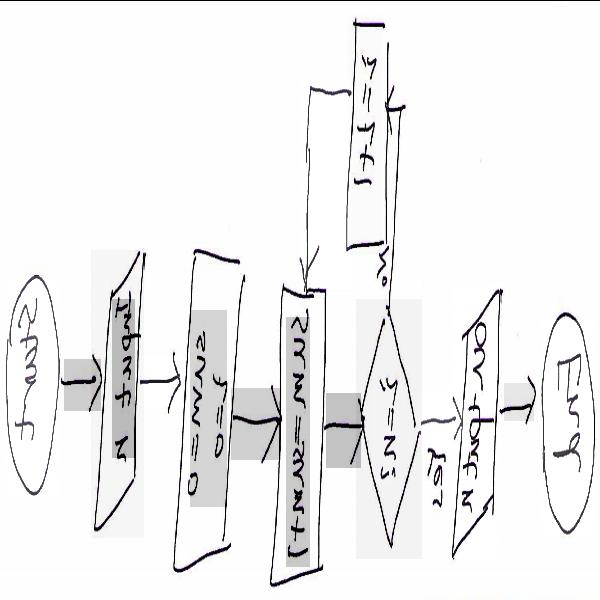 Start
Input N
sum=0
j=0
sum=sum+j
j=N?
No
j=j+1
Yes
Output N
End